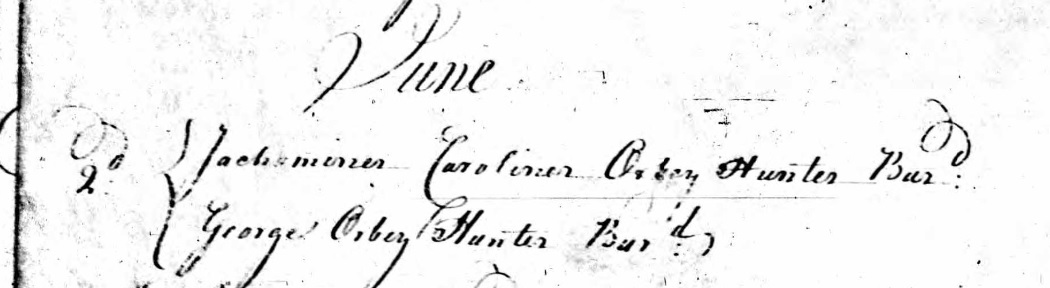 June
2d Jachominer Caroliner Orbey Hunter Burd.
George Orbey Hunter Burd.